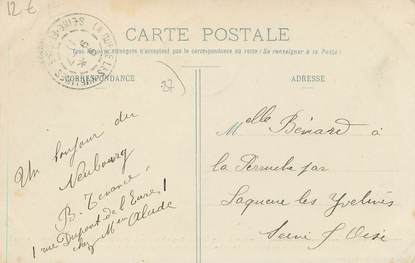 12€
CARTE POSTALE
Tous les pays étrangers n'acceptent pas la correspondance au recto (Se renseigner à la Poste)
CORRESPONDANCE
ADRESSE
27
Un bonjour du
Neubourg
B.
1 rue Dupont-de l'Eure, 1
chez Mme
Melle Bénard à
la par
les Yvelines
Seine & Oise